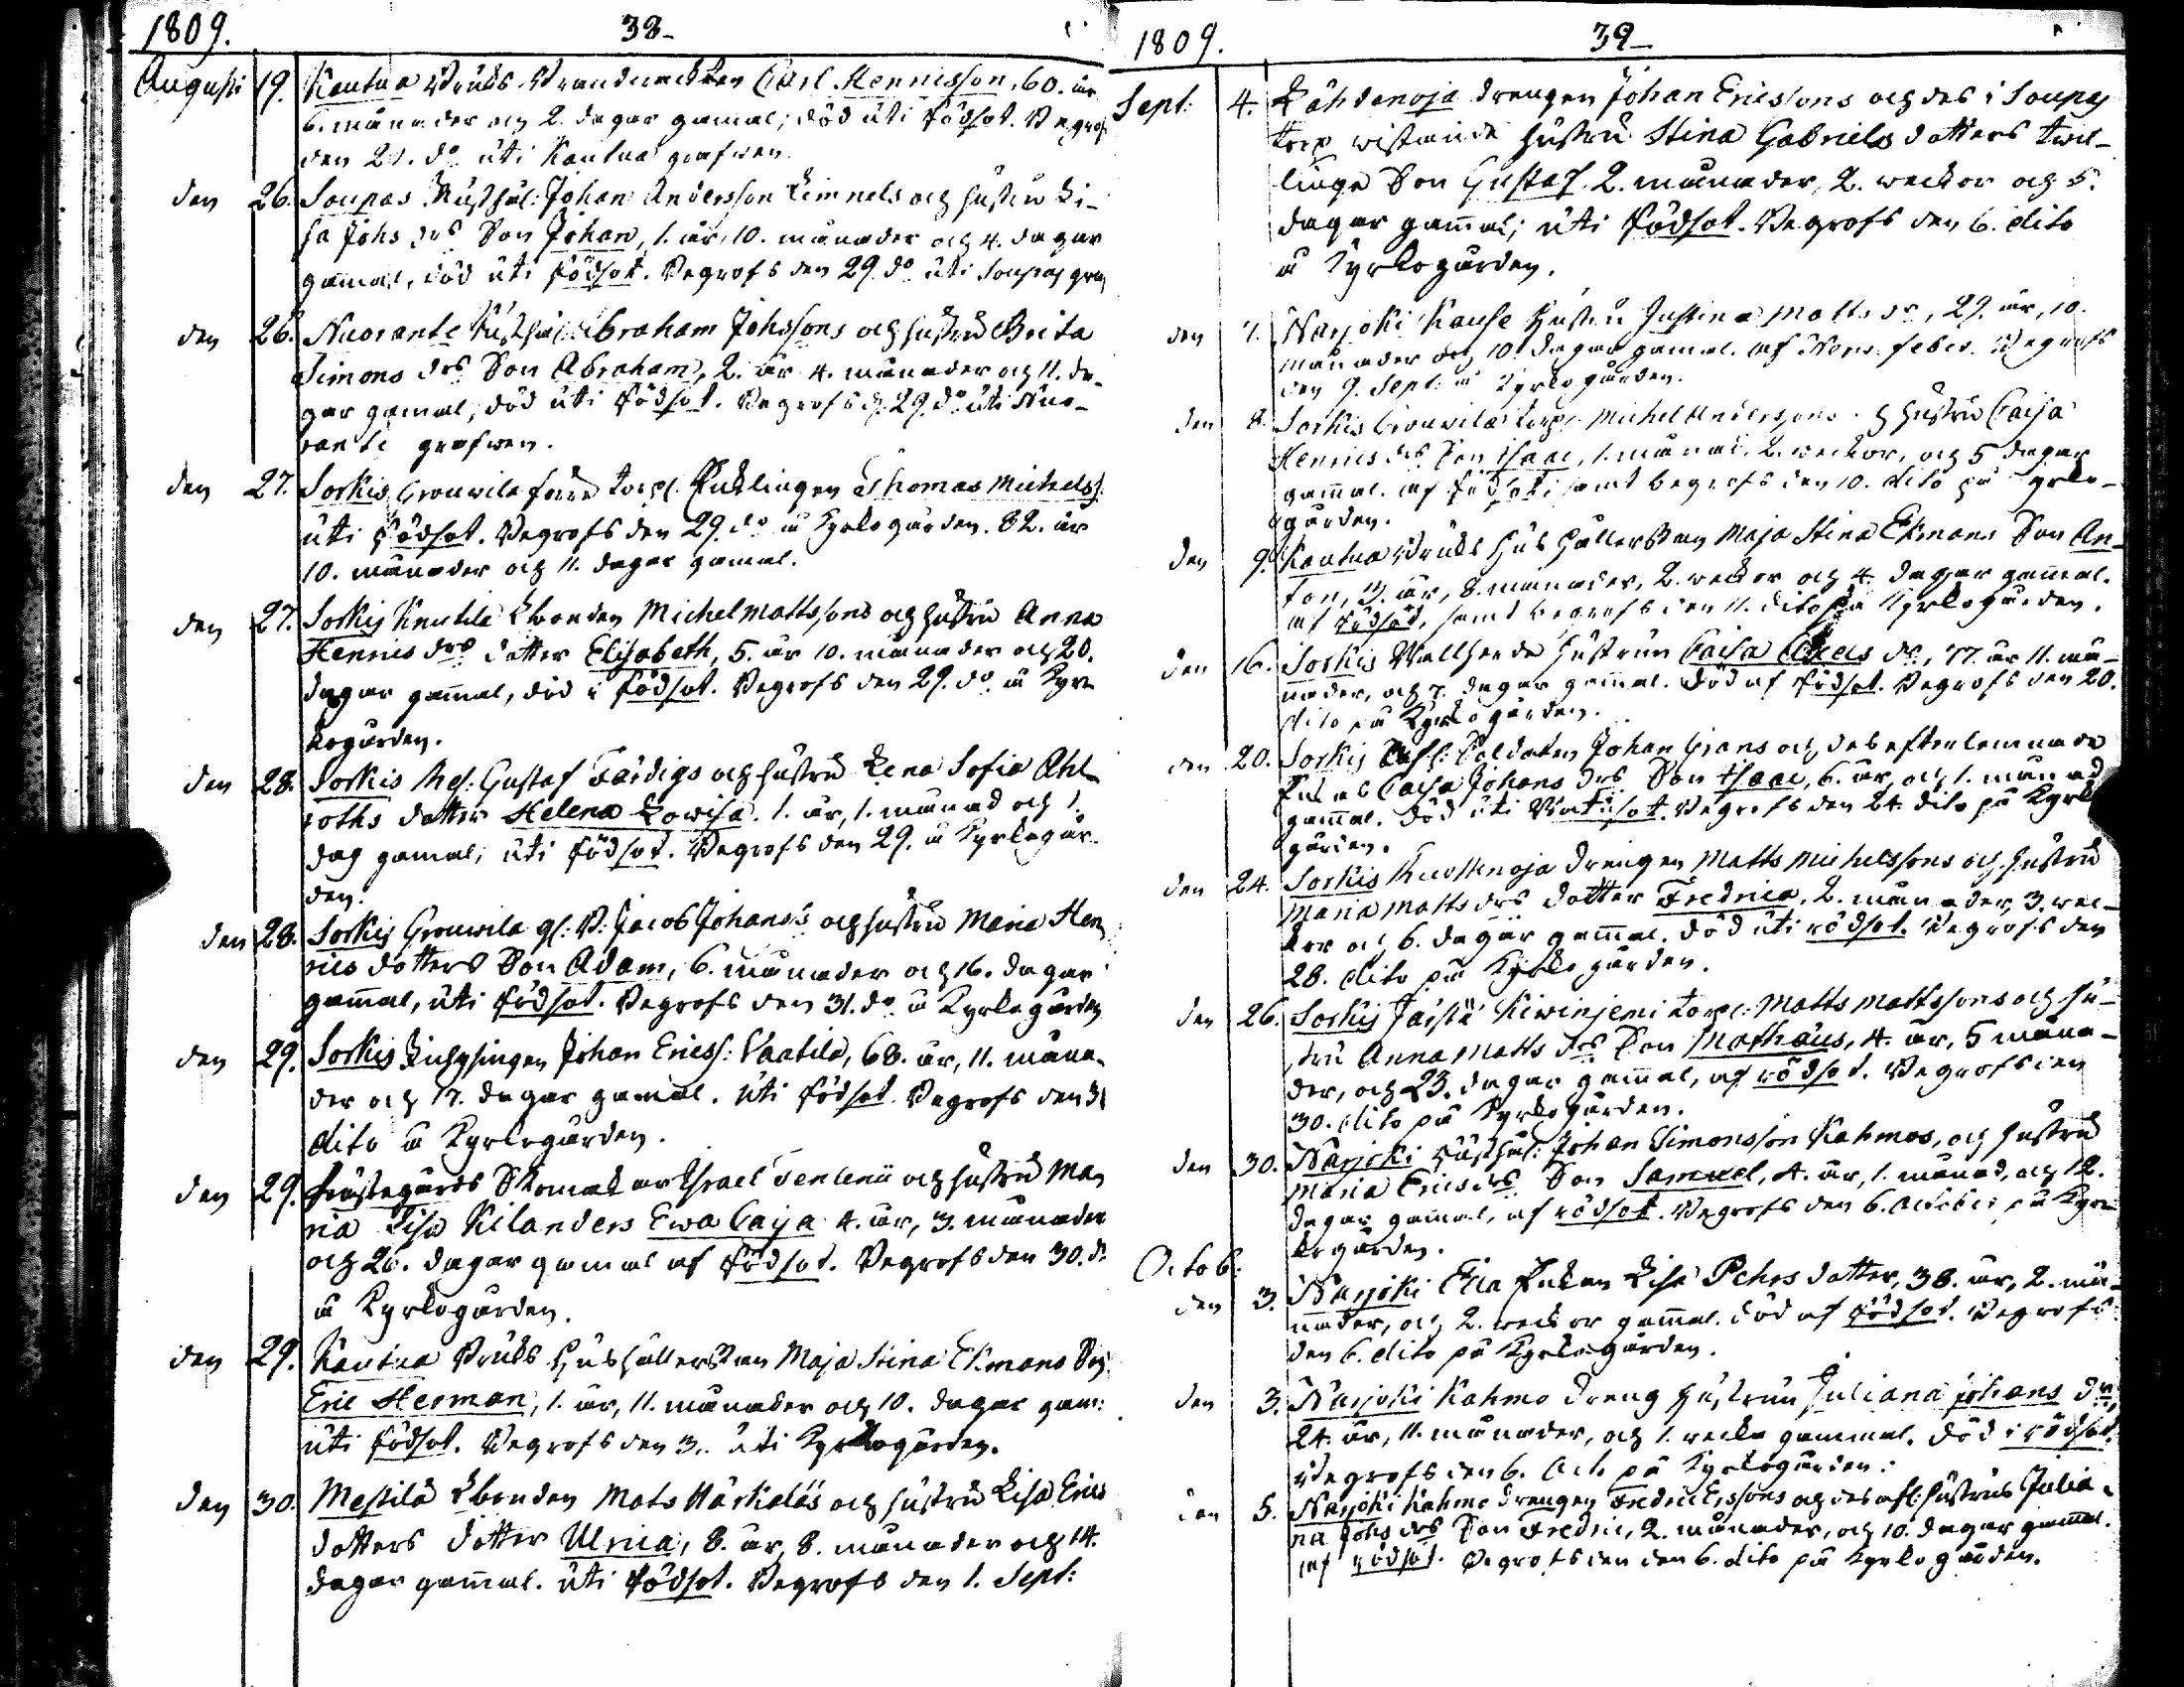 1809.
38-
Augusti 19. Kautua Bruks Brandvackten Carl Hennisson, 60. år
6. månader och 2. dagar gamal; död uti rödsot. Begrofs
den 21. do uti Kautua grafwen.
den 26. Soupas Rusthål: Johan Andersson Limnels och hustru Li-
sa Johs drs Son Johan, 1. år, 10. månader och 4. dagar
gammal, död uti rödsot. Begrofs den 29. do uti Soupas graf
den 26. Nuoranti Rusthål: Abraham Johssons och hustru Brita
Simons drs Son Abraham, 2. år 4. månader och 11. da-
gar gamal, död uti rödsot. Begrofs d. 29. do uti Nuo-
ranti grafwen.
den 27. Sorkis Crouwila torp. Enklingen Thomas Michelss:
uti rödsot. Begrofs den 29. do å Kyrkogården. 82. år
10. månader och 11. dagar gamal.
den 27. Sorkis Knutila Åbonden Michel Mattssons och hustru Anna
Hennis drs dotter Elisabeth, 5. år 10. månader och 20.
dagar gammal, död i rödsot. Begrofs den 29. do å Kyr-
kogården.
den 28. Sorkis Gustaf Färdigs och hustru Lena Sofia Ahl-
roths dotter Helena Lowisa. 1. år, 1. månad och 1.
dag gamal; uti rödsot. Begrofs den 29. å Kyrkogår-
den.
den 28. Sorkis Grouwila Jacob Johans:s och hustru Maria Hen-
rics dotters Son Adam, 6. månader och 16. dagar
gammal, uti rödsot. Begrofs den 31. do å Kyrkogården
den 29. Sorkis Johan Ericss: Vaatila, 68. år, 11. måna-
der och 17. dagar gamal. uti rödsot. Begrofs den 31
dito å Kyrkogården.
den 29. Prästegårds Skomakar Israel Tenlenii och hustru Ma-
ria Lisa Kilanders Ewa Caija 4. år, 3. månader
och 26. dagar gamal af rödsot. Begrofs den 30. do
å Kyrkogården.
den 29. Kautua Bruks Hushållerskan Maja Stina Ekmans Son
Eric Herman, 1. år, 11. månader och 10. dagar gam:
uti rödsot. Begrofs den 3. uti Kyrkogården.
den 30. Mestilä Åbonden Mats Härkäläs och hustru Lisa Erics
dotters dotter Ulrica, 8. år, 8. månader och 14.
dagar gammal. uti rödsot. Begrofs den 1. Sept:
1809.
39-
Sept: 4. Lähdenoja drengen Johan Ericssons och des i Soupas
torp wistande hustru Stina Gabriels dotters twil-
linge Son Gustaf 2. månader, 2. weckor och 5.
dagar gammal; uti rödsot. Begrofs den 6. dito
å Kyrkogården.
den 7. Narjoki Kause hustru Justina Matts dr, 29. år, 10.
månader och 10. dagar gamal. af feber. Begrofs
den 9. Sept: å Kyrkogården.
den 8. Sorkis Crouwila torp: Michel Anderssons och hustru Caisa
Hennis drs Son Isaac, 1. månad, 2. weckor, och 5 dagar
gammal. af rödsot; samt begrofs den 10. dito på Kyrko-
gården.
den 9. Kautua Bruks Hus hållerskan Maja Stina Ekmans Son An-
ton, 3. år, 8. månader, 2. weckor och 4. dagar gammal.
af rödsot, samt begrofs den 11. dito på Kyrkogården.
den 16. Sorkis Wallherde hustrun Caisa dr, 77. år 11. må-
nader, och 7. dagar gammal. Död af rödsot. Begrofs den 20.
dito på Kyrkogården.
den 20. Sorkis Soldaten Johan Grans och des efterlemnade
Enkas Caisa Johans drs Son Isaac, 6. år, och 1. månad
gammal. död uti Watusot. Begrofs den 24. dito på Kyrko
gården.
den 24. Sorkis drengen Matts Michelssons och hustru
Maria Matts drs dotter Fredrica, 2. månader, 3. wec-
kor och 6. dagar gammal. död uti rödsot. Begrofs den
28. dito på Kyrkogården.
den 26. Sorkis Kiwinjemi torp: Matts Mattssons och hu-
stru Anna Matts drs Son Mathæus, 4. år, 5 måna-
der, och 23. dagar gammal, af rödsot. Begrofs den
30. dito på Kyrkogården.
den 30. Narjoki rusthål: Johan Simonsson Kahmos, och hustru
Maria Erics drs Son Samuel, 4. år, 1. månad, och 12.
dagar gammal, af rödsot. Begrofs den 6. October på Kyr-
kogården.
Octob:
den 3. Narjoki Erla Enkan Lisa Pehrs dotter, 38. år, 2. må-
nader, och 2. weckor gammal. död af rödsot. Begrofs
den 6. dito på Kyrkogården.
den 3. Narjoki Kahmo dreng hustrun Juliana Johans dr,
24. år, 11. månader, och 1. wecka gammal. död i rödsot.
Begrofs den 6. Oct. på Kyrkogården.
den 5. Narjoki Kahmo drengen Fredric Erssons och des afl: hustrus Julia-
na Johs drs Son Fredric, 2. månader, och 10. dagar gammal.
af rödsot. Begrofs den den 6. dito på Kyrkogården.